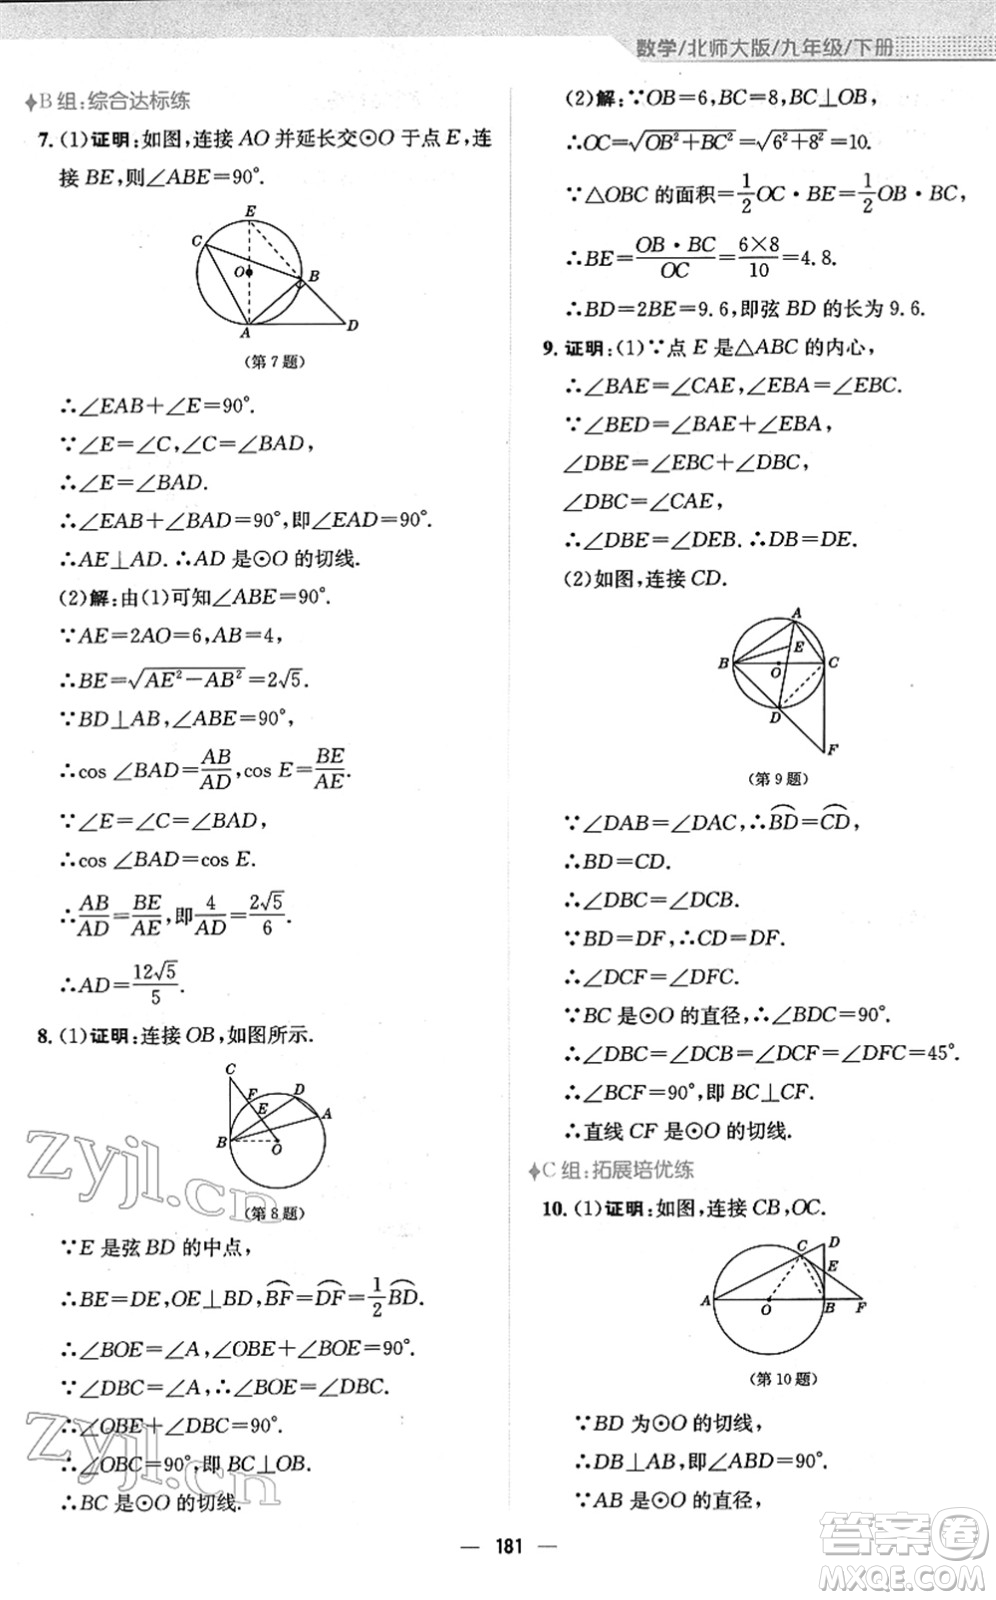 数学/北师大版/九年级/下册
B 组:综合达标练
7. (1)证明:如图,连接 AO 并延长交⊙O 于点 E,连
接 BE,则∠ABE=90°.
E
C
O
B
A
D
(第 7 题)
∴∠EAB+∠E=90°.
∵∠E=∠C,∠C=∠BAD,
∴∠E=∠BAD.
∴∠EAB+∠BAD=90°,即∠EAD=90°.
∴AE⊥AD. ∴AD 是⊙O 的切线.
(2)解:由(1)可知∠ABE=90°.
∵AE=2AO=6,AB=4,
∴BE=√(AE²-AB²)=2√5.
∵BD⊥AB,∠ABE=90°,
∴cos ∠BAD=AB/AD,cos E=BE/AE.
∵∠E=∠C=∠BAD,
∴cos ∠BAD=cos E.
∴AB/AD=BE/AE,即4/AD=2√5/6.
∴AD=12√5/5.
8. (1)证明:连接 OB,如图所示.
C
F
D
E
A
B
O
(第 8 题)
∵E 是弦 BD 的中点,
∴BE=DE,OE⊥BD,BF⌒=DF⌒=1/2BD⌒.
∴∠BOE=∠A,∠OBE+∠BOE=90°.
∵∠DBC=∠A,∴∠BOE=∠DBC.
∴∠OBE+∠DBC=90°.
∴∠OBC=90°,即 BC⊥OB.
∴BC 是⊙O 的切线.
(2)解:∵OB=6,BC=8,BC⊥OB,
∴OC=√(OB²+BC²)=√(6²+8²)=10.
∵△OBC 的面积=1/2OC·BE=1/2OB·BC,
∴BE=OB·BC/OC=6×8/10=4.8.
∴BD=2BE=9.6,即弦 BD 的长为 9.6.
9. 证明:(1)∵点 E 是△ABC 的内心,
∴∠BAE=∠CAE,∠EBA=∠EBC.
∵∠BED=∠BAE+∠EBA,
∠DBE=∠EBC+∠DBC,
∠DBC=∠CAE,
∴∠DBE=∠BED. ∴DB=DE.
(2)如图,连接 CD.
A
E
B
O
C
D
F
(第 9 题)
∵∠DAB=∠DAC,∴BD⌒=CD⌒,
∴BD=CD.
∴∠DBC=∠DCB.
∵BD=DF,∴CD=DF.
∴∠DCF=∠DFC.
∵BC 是⊙O 的直径,∴∠BDC=90°.
∴∠DBC=∠DCB=∠DCF=∠DFC=45°.
∴∠BCF=90°,即 BC⊥CF.
∴直线 CF 是⊙O 的切线.
C 组:拓展培优练
10. (1)证明:如图,连接 CB,OC.
C
D
E
A
O
B
F
(第 10 题)
∵BD 为⊙O 的切线,
∴DB⊥AB,∴∠ABD=90°.
∵AB 是⊙O 的直径,
— 181 —
zyjl.cn
zyjl.cn
答案卷
MXQE.COM